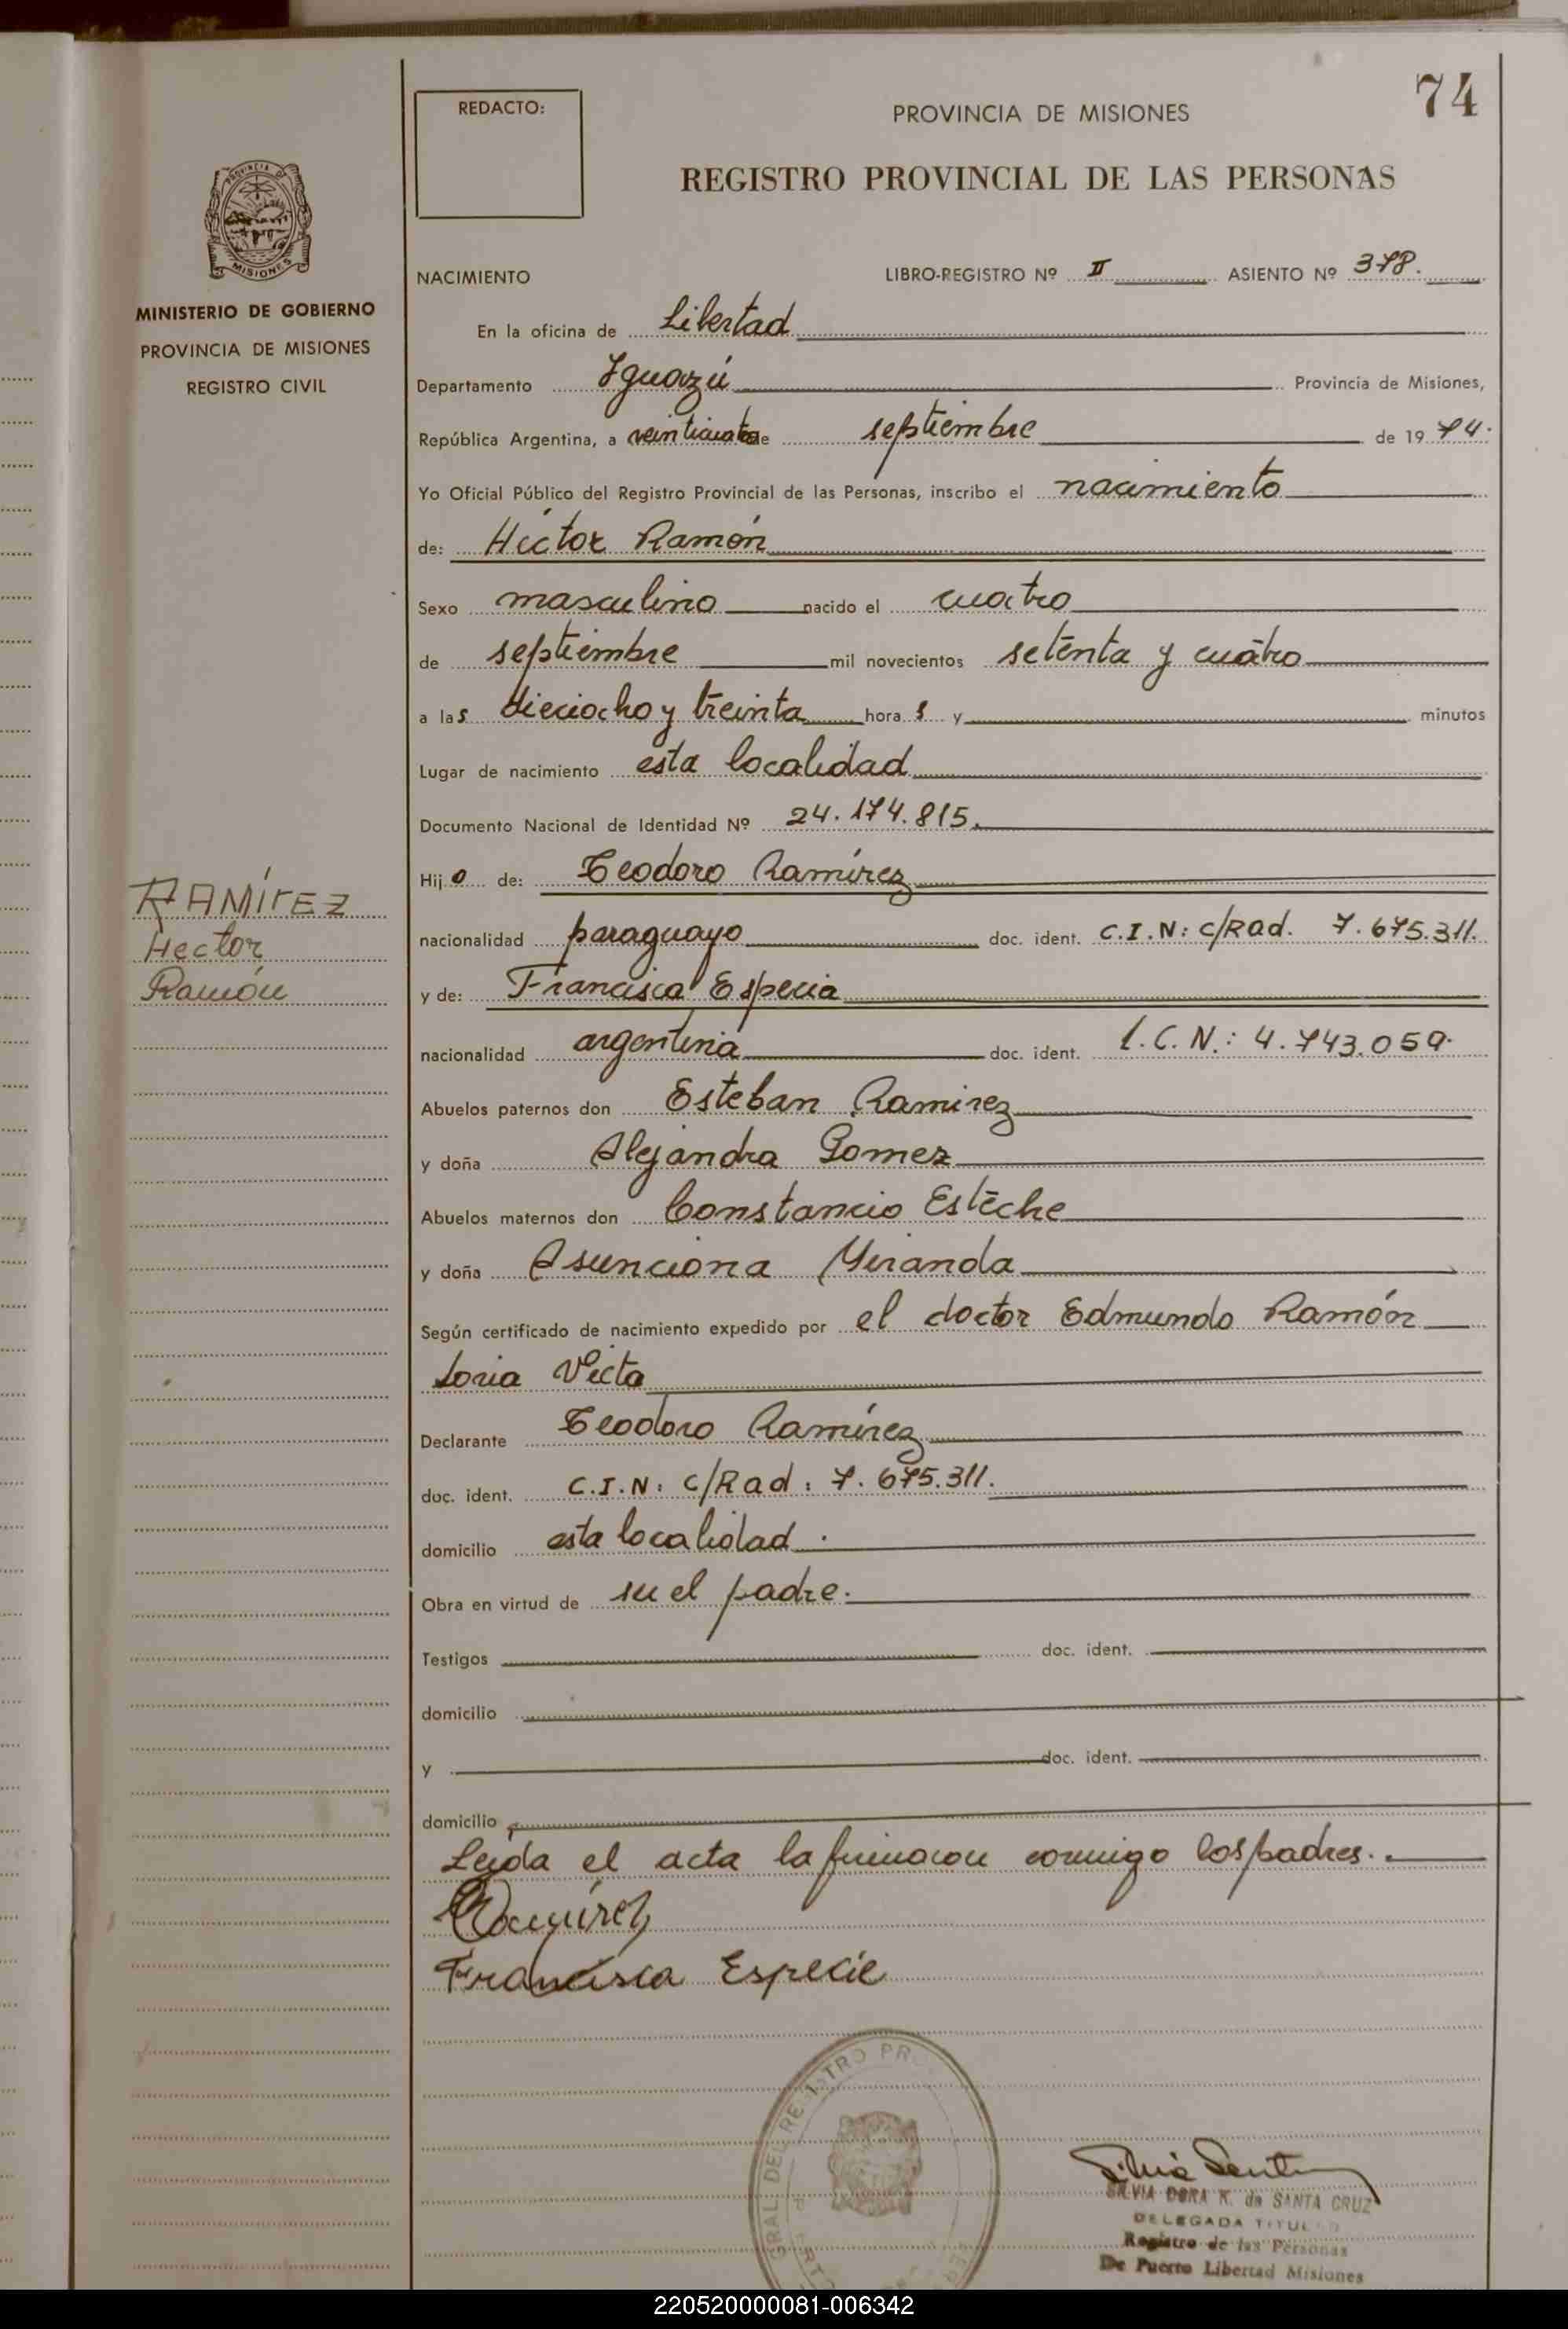 74
REDACTO:
PROVINCIA DE MISIONES
REGISTRO PROVINCIAL DE LAS PERSONAS
PROVINCIA DE
MISIONES
MINISTERIO DE GOBIERNO
PROVINCIA DE MISIONES
REGISTRO CIVIL
NACIMIENTO
LIBRO-REGISTRO Nº II ASIENTO Nº 378.
En la oficina de Libertad
Departamento Iguazú Provincia de Misiones,
República Argentina, a veinticuatro de septiembre de 1974.
Yo Oficial Público del Registro Provincial de las Personas, inscribo el nacimiento
de: Héctor Ramón
Sexo masculino nacido el cuatro
de septiembre mil novecientos setenta y cuatro
a las dieciocho y treinta hora s y minutos
Lugar de nacimiento esta localidad
Documento Nacional de Identidad Nº 24.174.815.
Hijo de: Teodoro Ramírez
RAMÍrEZ
Hector
Ramón
nacionalidad paraguayo doc. ident. C.I.N: C/Rad. 7.675.311.
y de: Francisca Especia
nacionalidad argentina doc. ident. L.C.N.: 4.743.059.
Abuelos paternos don Esteban Ramirez
y doña Alejandra Gomez
Abuelos maternos don Constancio Esteche
y doña Asunciona Miranda
Según certificado de nacimiento expedido por el doctor Edmundo Ramón
Soria Vieta
Declarante Teodoro Ramírez
doc. ident. C.I.N: C/Rad: 7.675.311.
domicilio esta localidad.
Obra en virtud de su el padre.
Testigos doc. ident.
domicilio
y doc. ident.
domicilio
Leida el acta la firmaron conmigo los padres.
Ramírez
Francisca Especie
GRAL DEL REGISTRO
SILVIA DORA K. de SANTA CRUZ
DELEGADA TITULAR
Registro de las Personas
De Puerto Libertad Misiones
220520000081-006342